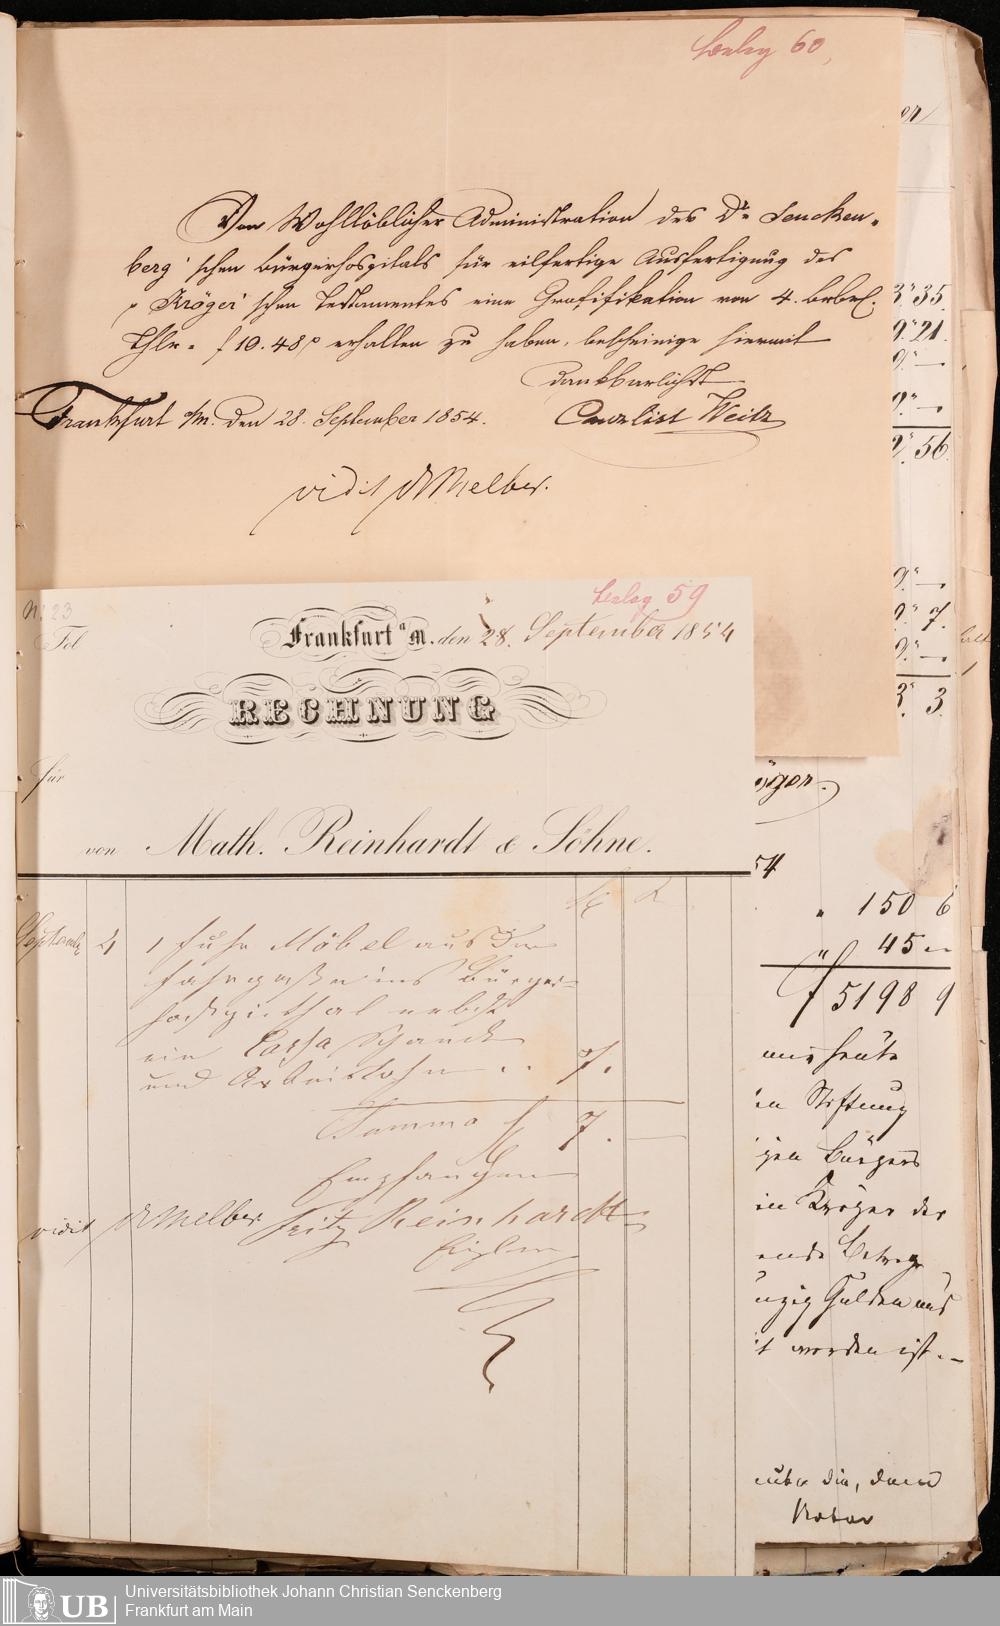 Beleg 60,
Von Wohllöblicher Administration des Dr Sencken-
berg'schen Bürgerhospitals für eilfertige Ausfertigung des
Kröger'schen Testamentes eine Gratifikation von 4.
Thlr. f 10. 48 erhalten zu haben, bescheinige hiermit
dankbarlichst
Frankfurt a/m. den 28. September 1854.
Canzlist Weitz
vidit Dr Melber.
No. 23
Beleg 59
Fol
Frankfurt a M. den 28. September 1854
RECHNUNG
für
von Math. Reinhardt & Söhne.
September 4 1 Fuhr Möbel aus der
Fahrgasse ins Bürger-
hospithal nebst
ein Cassa Schanck
und Arbeitslohn .. 7.
Summa f 7. —
Empfangen
vidit Dr Melber Fritz Reinhardt
35
21
56
7.
3 3.
54
" 150 6
" 45 —
f 5198 9
heute
Stiftung
Bürgers
Kröger der
Gulden
worden ist. –
die, dann
Notar
UB
Universitätsbibliothek Johann Christian Senckenberg
Frankfurt am Main